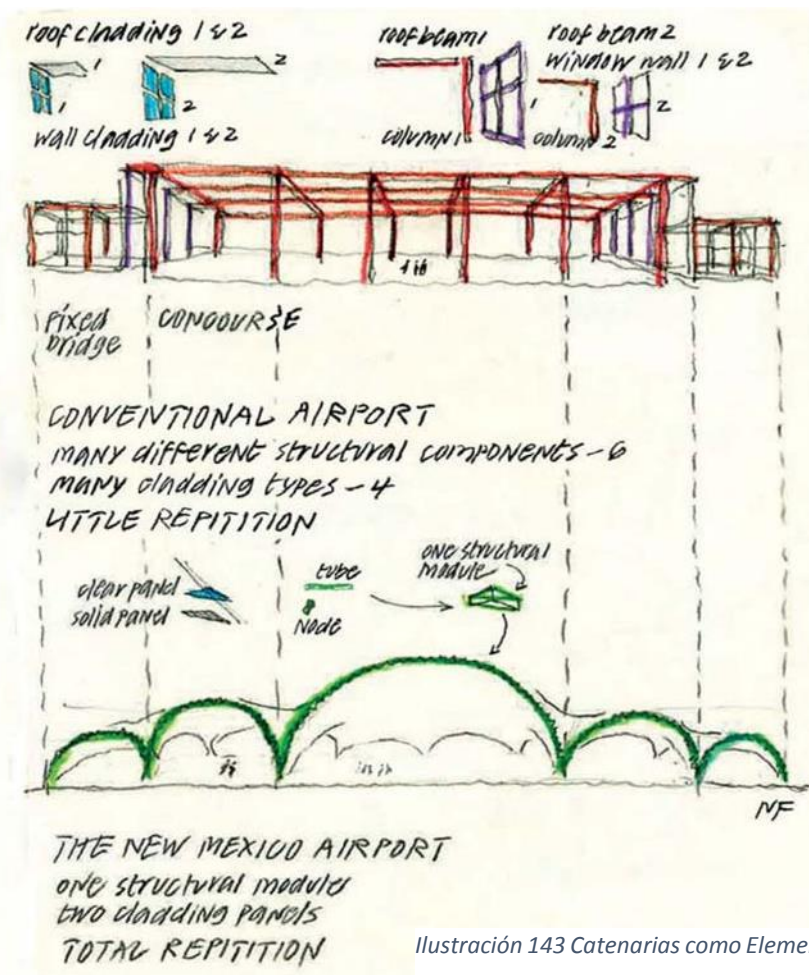 roof cladding 1 & 2
1
2
1
2
wall cladding 1 & 2
roof beam 1
roof beam 2
window wall 1 & 2
1
2
column 1
column 2
fixed
bridge
CONCOURSE
CONVENTIONAL AIRPORT
many different structural components - 6
many cladding types - 4
LITTLE REPITITION
clear panel
solid panel
tube
Node
one structural
module
NF
THE NEW MEXICO AIRPORT
one structural module
two cladding panels
TOTAL REPITITION
Ilustración 143 Catenarias como Eleme